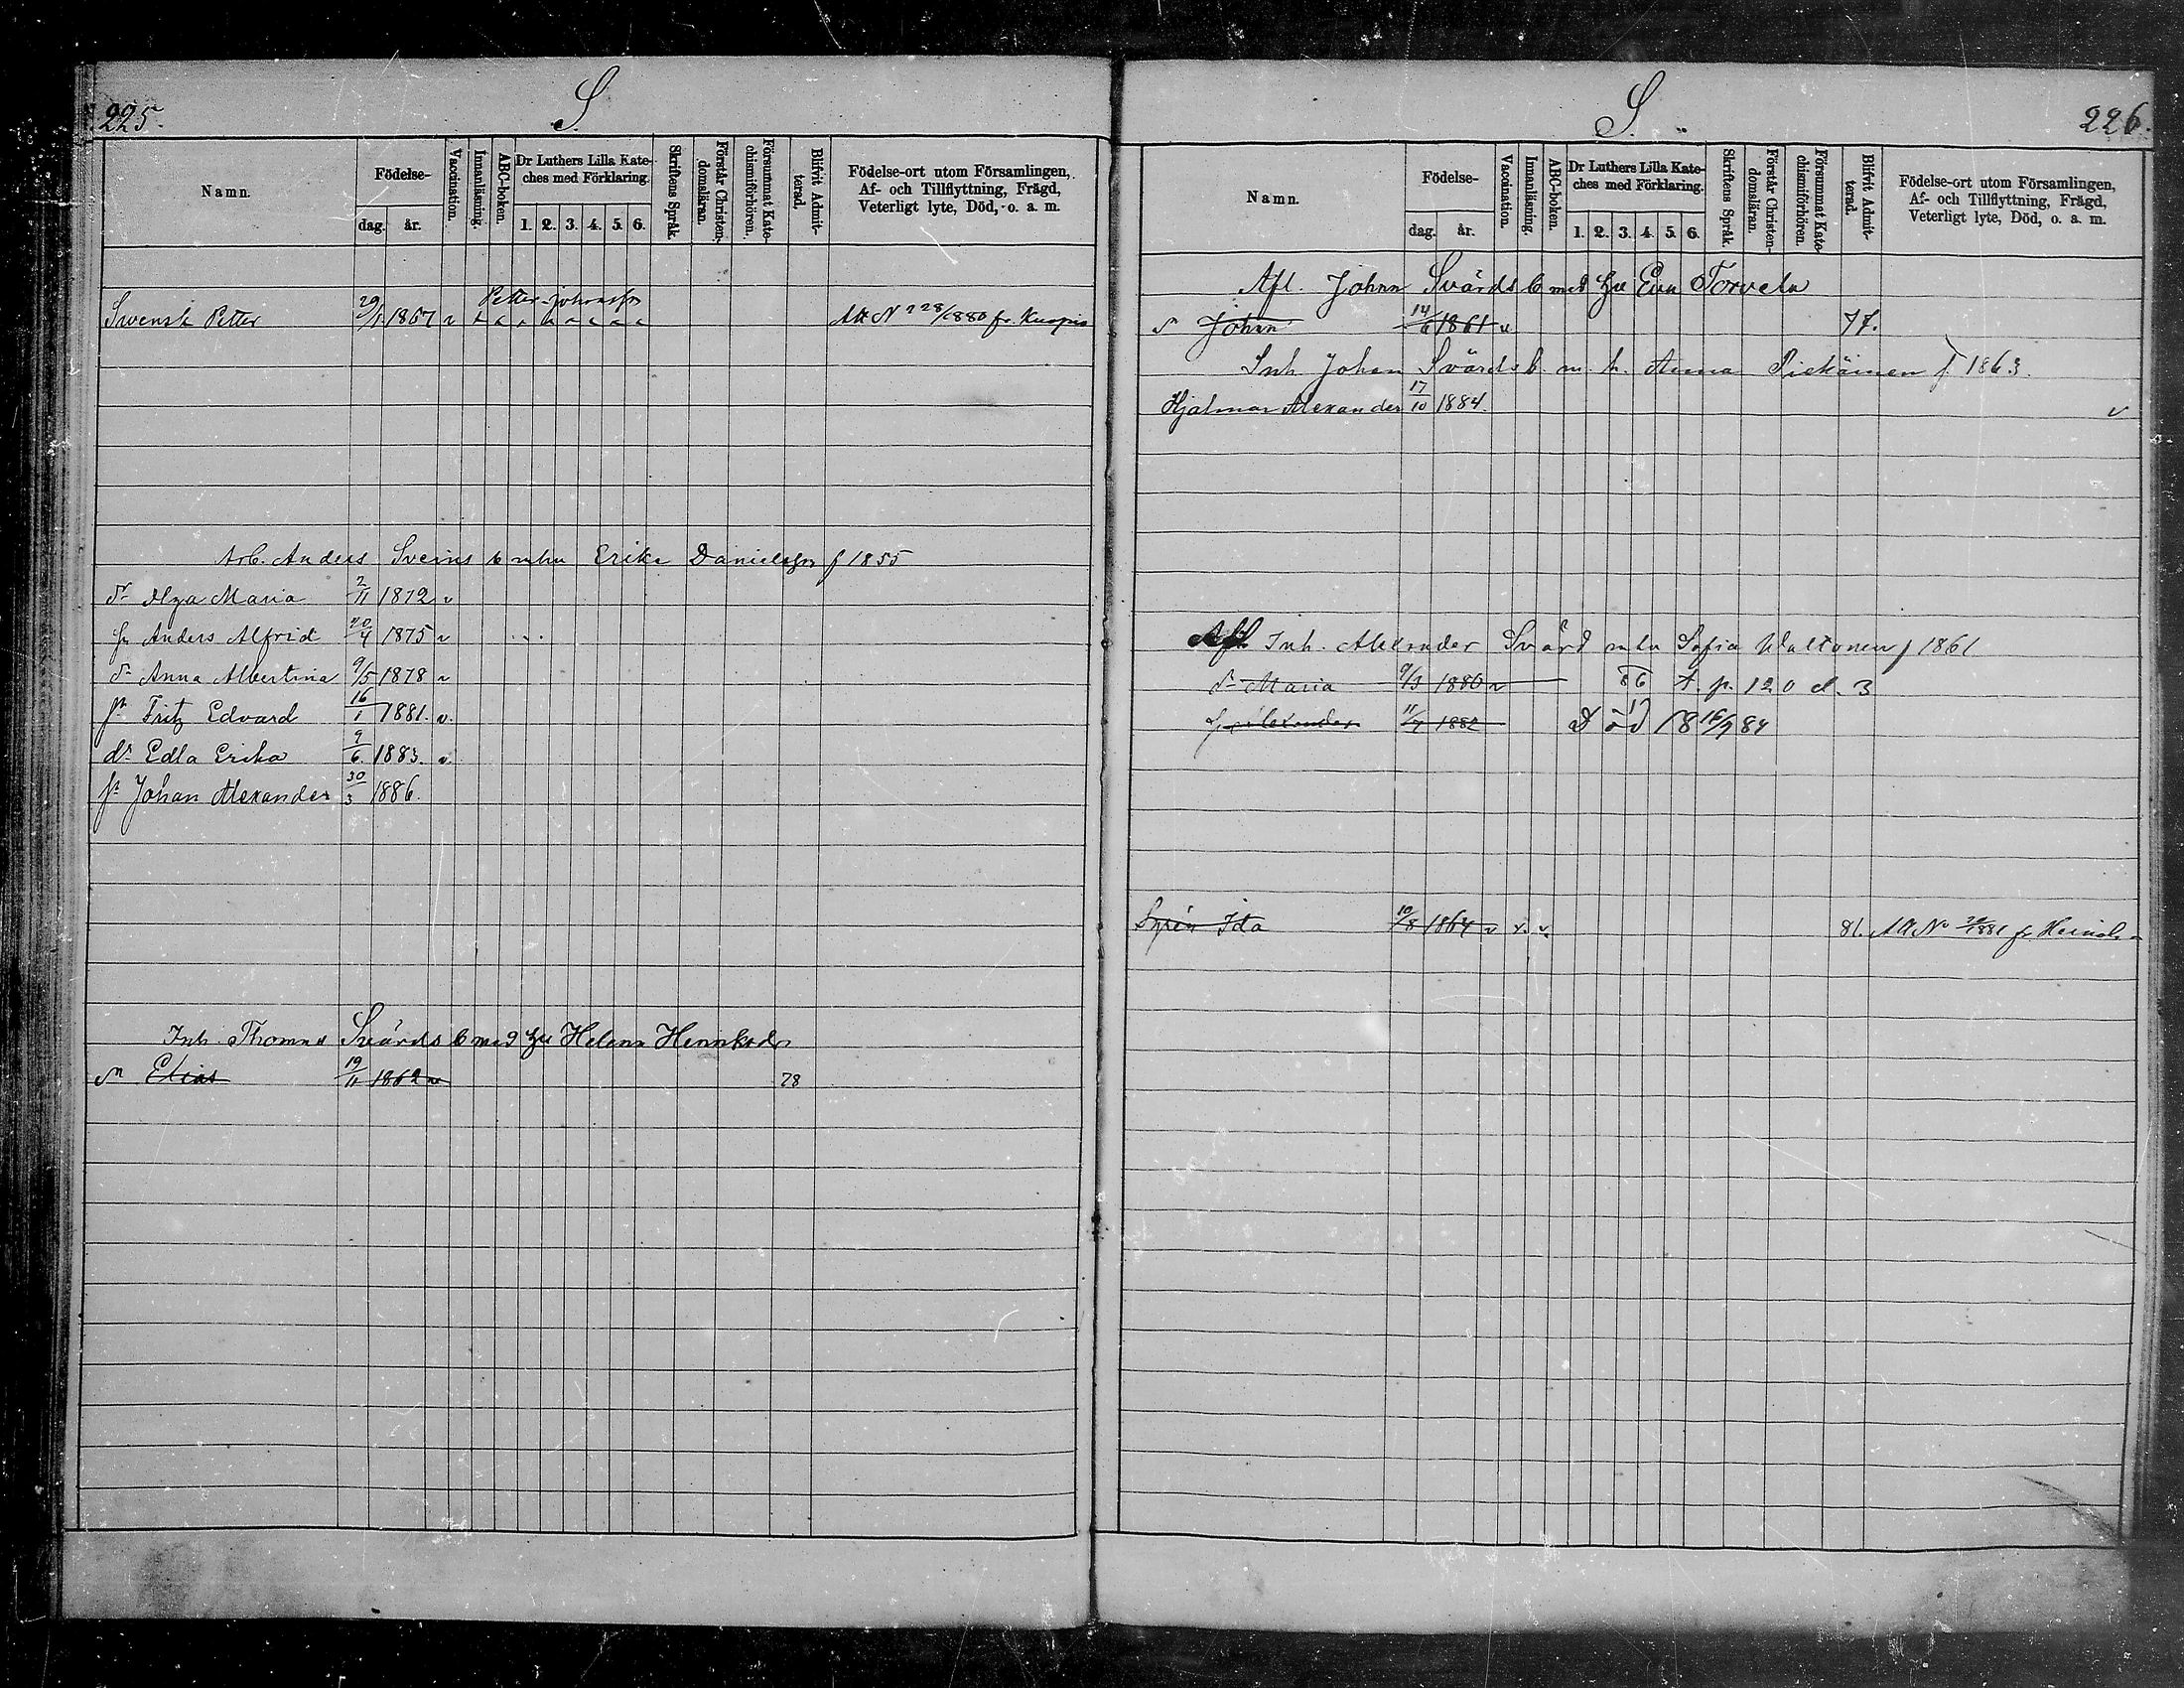 225.
S.
Namn.
Födelse-
dag.
år.
Vaccination.
Innanläsning.
ABC-boken.
Dr Luthers Lilla Kate-
ches med Förklaring.
1. 2. 3. 4. 5. 6.
Skriftens Språk.
Förstår Christen-
domsläran.
Försummat Kate-
chismiförhören.
Blifvit Admit-
terad.
Födelse-ort utom Församlingen,
Af- och Tillflyttning, Frägd,
Veterligt lyte, Död, o. a. m.
Petter Johansson
Swensk Petter 29/1 1867 v Att No 28/1880 fr. Kuopio
Arb. Anders Sveins b mhu Erika Danielsson f 1855
dr Olga Maria 2/11 1872 v
sn Anders Alfrid 20/4 1875 v
dr Anna Albertina 9/5 1878 v
sn Fritz Edvard 16/1 1881. v.
dr Edla Erika 9/6 1883. v.
sn Johan Alexander 30/3 1886.
Inh. Thomas Svärds b med hu Helena Heinikodr
sn Elias 19/11 1862 v 78
S.
226.
Namn.
Födelse-
dag.
år.
Vaccination.
Innanläsning.
ABC-boken.
Dr Luthers Lilla Kate-
ches med Förklaring.
1. 2. 3. 4. 5. 6.
Skriftens Språk.
Förstår Christen-
domsläran.
Försummat Kate-
chismiförhören.
Blifvit Admit-
terad.
Födelse-ort utom Församlingen,
Af- och Tillflyttning, Frägd,
Veterligt lyte, Död, o. a. m.
Afl. Johan Svärds b med hu Eva Torvela
s Johan 14/6 1861 v 77.
Inh. Johan Svärds b. m. h. Anna Piekäinen f. 1863.
Hjalmar Alexander 17/10 1884. v
Afl Inh. Alexander Svärd mhu Sofia Waltonen f 1861
dr Maria 9/3 1880 v 86 t. p. 120 d. 3
sn Alexander 11/7 1882 Död 18 16/9 84
Syrén Ida 10/8 1864 v v. v. 81. Att No /1881 fr